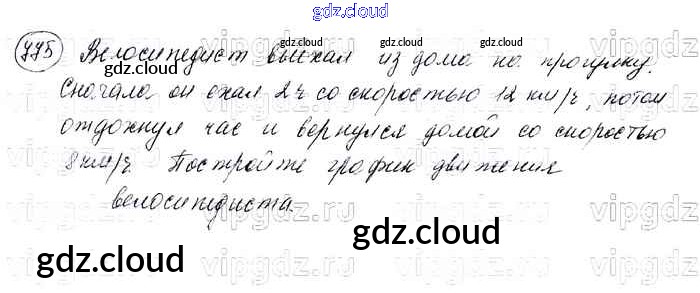 gdz.cloud
775 Велосипедист выехал из дома на прогулку.
gdz.cloud gdz.cloud gdz.cloud
Сначала он ехал 2ч со скоростью 12 км/ч, потом
отдохнул час и вернулся домой со скоростью
8 км/ч. Постройте график движения
велосипедиста.
vipgdz.ru vipgdz.ru vipgdz.ru
gdz.cloud gdz.cloud